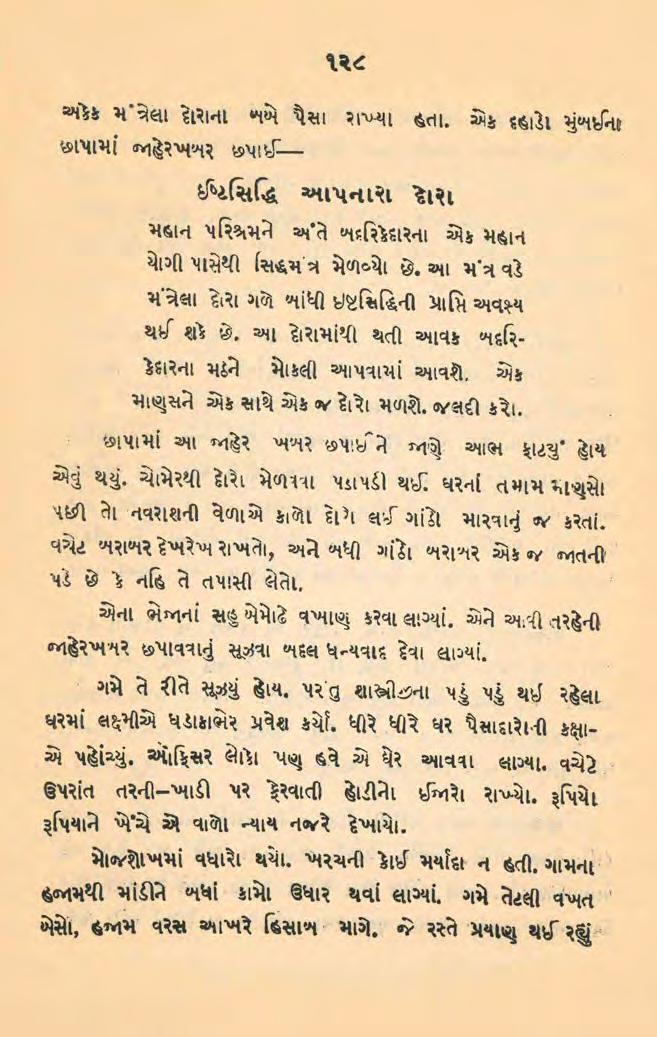 ૧૨૮
અકેક મંત્રેલા દોરાના બબે પૈસા રાખ્યા હતા. એક દહાડો મુંબઈના
છાપામાં જાહેરખબર છપાઈ—
ઈષ્ટસિદ્ધિ આપનારા દોરા
મહાન પરિશ્રમને અંતે બદરિકેદારના એક મહાન
યોગી પાસેથી સિદ્ધમંત્ર મેળવ્યો છે. આ મંત્ર વડે
મંત્રેલા દોરા ગળે બાંધી ઇષ્ટસિદ્ધિની પ્રાપ્તિ અવશ્ય
થઈ શકે છે. આ દોરામાંથી થતી આવક બદરિ-
કેદારના મઠને મોકલી આપવામાં આવશે. એક
માણસને એક સાથે એક જ દોરો મળશે. જલદી કરો.
છાપામાં આ જાહેર ખબર છપાઈ ને જાણે આભ ફાટ્યું હોય
એવું થયું. ચોમેરથી દોરા મેળવવા પડાપડી થઈ. ઘરનાં તમામ માણસો
પછી તો નવરાશની વેળાએ કાળો દોરો લઈ ગાંઠો મારવાનું જ કરતાં.
વચેટ બરાબર દેખરેખ રાખતો, અને બધી ગાંઠો બરાબર એક જ જાતની
પડે છે કે નહિ તે તપાસી લેતો.
એના ભેજાનાં સહુ બેમોઢે વખાણ કરવા લાગ્યાં. એને આવી તરહેની
જાહેરખબર છપાવવાનું સૂઝવા બદલ ધન્યવાદ દેવા લાગ્યાં.
ગમે તે રીતે સૂઝ્યું હોય. પરંતુ શાસ્ત્રીજીના પડું પડું થઈ રહેલા
ઘરમાં લક્ષ્મીએ ધડાકાભેર પ્રવેશ કર્યો. ધીરે ધીરે ઘર પૈસાદારોની કક્ષા-
એ પહોંચ્યું. ઓફિસર લોકો પણ હવે એ ઘેર આવવા લાગ્યા. વચેટે
ઉપરાંત તરની—ખાડી પર ફેરવાતી હોડીનો ઈજારો રાખ્યો. રૂપિયો
રૂપિયાને ખેંચે એ વાળો ન્યાય નજરે દેખાયો.
મોજશોખમાં વધારો થયો. ખરચની કોઈ મર્યાદા ન હતી. ગામના
હજામથી માંડીને બધાં કામો ઉધાર થવાં લાગ્યાં. ગમે તેટલી વખત
બેસો, હજામ વરસ આખરે હિસાબ માગે. જે રસ્તે પ્રયાણ થઈ રહ્યું